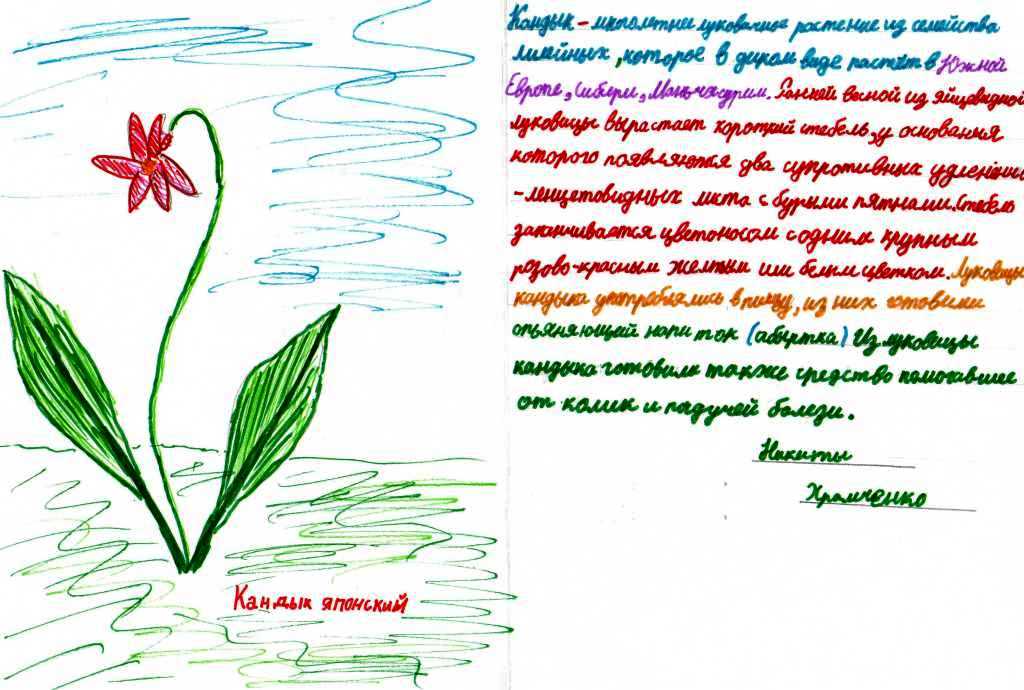 Кандык - многолетнее луковичное растение из семейства
лилейных, которое в диком виде растёт в Южной
Европе, Сибири, Маньчжурии. Ранней весной из яйцевидной
луковицы вырастает короткий стебель, у основания
которого появляются два супротивных удлинённо
- ланцетовидных листа с бурыми пятнами. Стебель
заканчивается цветоносом с одним крупным
розово-красным желтым или белым цветком. Луковицы
кандыка употреблялись в пищу, из них готовили
опьяняющий напиток (абыртка) Из луковицы
кандыка готовили также средство помогавшее
от колик и падучей болези.
Никиты
Храмченко
Кандык японский